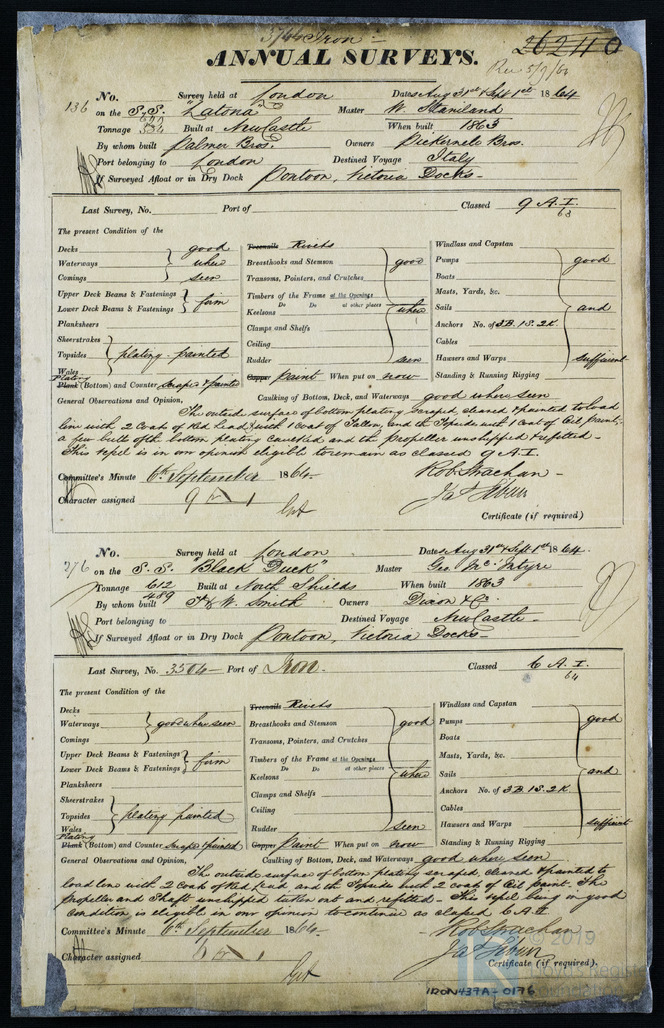 Iron
ANNUAL SURVEYS.
26240
Rec 5/9/64
136 No. Survey held at London Date, Aug 31st & Sept 1st 1864
on the S.S. "Latona" Master W. Staniland
Tonnage Built at NewCastle When built 1863
By whom built Palmer Bros. Owners Pickernell Bros.
Port belonging to London Destined Voyage Italy
If Surveyed Afloat or in Dry Dock Pontoon, Victoria Docks -
Last Survey, No. Port of Classed 9 A.1. 63
The present Condition of the
Decks good
Waterways when
Comings seen
Upper Deck Beams & Fastenings
Lower Deck Beams & Fastenings firm
Planksheers
Sheerstrakes
Topsides plating painted
Wales
Plating
Plank (Bottom) and Counter scraped & painted
Treenails Rivets
Breasthooks and Stemson good
Transoms, Pointers, and Crutches
Timbers of the Frame at the Openings
Do Do at other places
Keelsons when
Clamps and Shelfs
Ceiling
Rudder seen
Copper Paint When put on now
Windlass and Capstan
Pumps good
Boats
Masts, Yards, &c.
Sails and
Anchors No. of 3B. 1S. 2K.
Cables
Hawsers and Warps sufficient
Standing & Running Rigging
General Observations and Opinion, Caulking of Bottom, Deck, and Waterways good where seen
The outside surface of bottom plating scraped, cleared & painted to load
line with 2 Coats of Red Lead, with 1 Coat of Tallow, and the Topside with 1 Coat of Oil paint;
a few butts of the bottom plating caulked and the Propeller unshipped & refitted -
This vessel is in our opinion eligible to remain as classed 9 A.1.
Committee's Minute 6th September 1864. Rob Strachan -
Character assigned 9 A 1
Certificate (if required)
276 No. Survey held at London Date, Aug 31st & Sept 1st 1864.
on the S.S. "Black Duck" Master Geo. McIntyre
Tonnage 612 489 Built at North Shields When built 1863
By whom built T & W. Smith Owners Dixon & Co.
Port belonging to Destined Voyage NewCastle -
If Surveyed Afloat or in Dry Dock Pontoon, Victoria Docks -
Last Survey, No. 3504 - Port of Iron. Classed 6 A.1. 64
The present Condition of the
Decks
Waterways good when seen
Comings
Upper Deck Beams & Fastenings
Lower Deck Beams & Fastenings firm
Planksheers
Sheerstrakes
Topsides plating painted
Wales
Plating
Plank (Bottom) and Counter scraped & painted
Treenails Rivets
Breasthooks and Stemson good
Transoms, Pointers, and Crutches
Timbers of the Frame at the Openings
Do Do at other places
Keelsons when
Clamps and Shelfs
Ceiling
Rudder seen
Copper Paint When put on now
Windlass and Capstan
Pumps good
Boats
Masts, Yards, &c.
Sails and
Anchors No. of 3B. 1S. 2K.
Cables
Hawsers and Warps sufficient
Standing & Running Rigging
General Observations and Opinion, Caulking of Bottom, Deck, and Waterways good where seen
The outside surface of bottom plating scraped, cleared & painted to
load line with 2 Coats of Red Lead and the Topside with 2 coats of Oil paint. The
Propeller and Shaft unshipped taken out and refitted - This vessel being in good
Condition is eligible in our opinion to continue as classed 6 A.1.
Committee's Minute 6th September 1864. Rob Strachan
Character assigned 6 A 1
Certificate (if required).
© 2019
IRON437A-0176